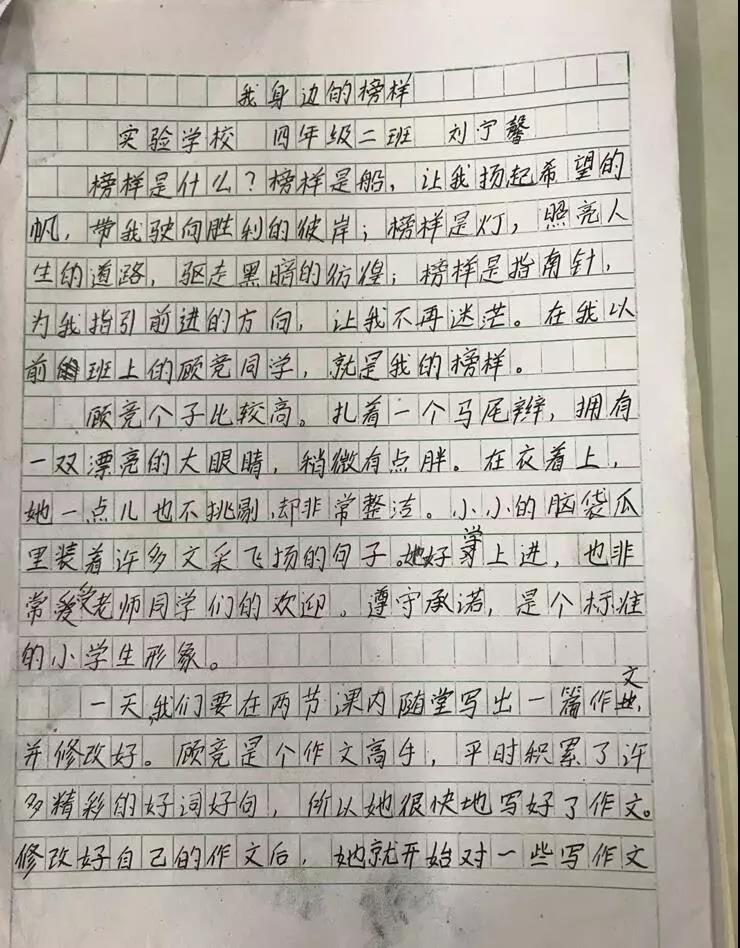 我身边的榜样
实验学校 四年级二班 刘宁馨
榜样是什么？榜样是船，让我扬起希望的
帆，带我驶向胜利的彼岸；榜样是灯，照亮人
生的道路，驱走黑暗的彷徨；榜样是指南针，
为我指引前进的方向，让我不再迷茫。在我以
前的班上的顾竞同学，就是我的榜样。
顾竞个子比较高。扎着一个马尾辫，拥有
一双漂亮的大眼睛，稍微有点胖。在衣着上，
她一点儿也不挑剔，却非常整洁。小小的脑袋瓜
里装着许多文采飞扬的句子。她好学上进，也非
常受老师同学们的欢迎。遵守承诺，是个标准
的小学生形象。
一天，我们要在两节课内随堂写出一篇作文，
并修改好。顾竞是个作文高手，平时积累了许
多精彩的好词好句，所以她很快地写好了作文。
修改好自己的作文后，她就开始对一些写作文